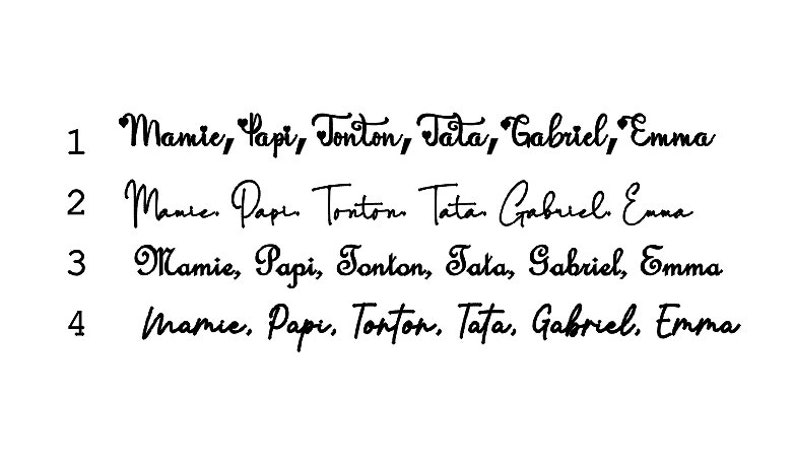 1 Mamie, Papi, Tonton, Tata, Gabriel, Emma
2 Mamie. Papi. Tonton. Tata. Gabriel. Emma
3 Mamie, Papi, Tonton, Tata, Gabriel, Emma
4 Mamie. Papi. Tonton. Tata. Gabriel. Emma